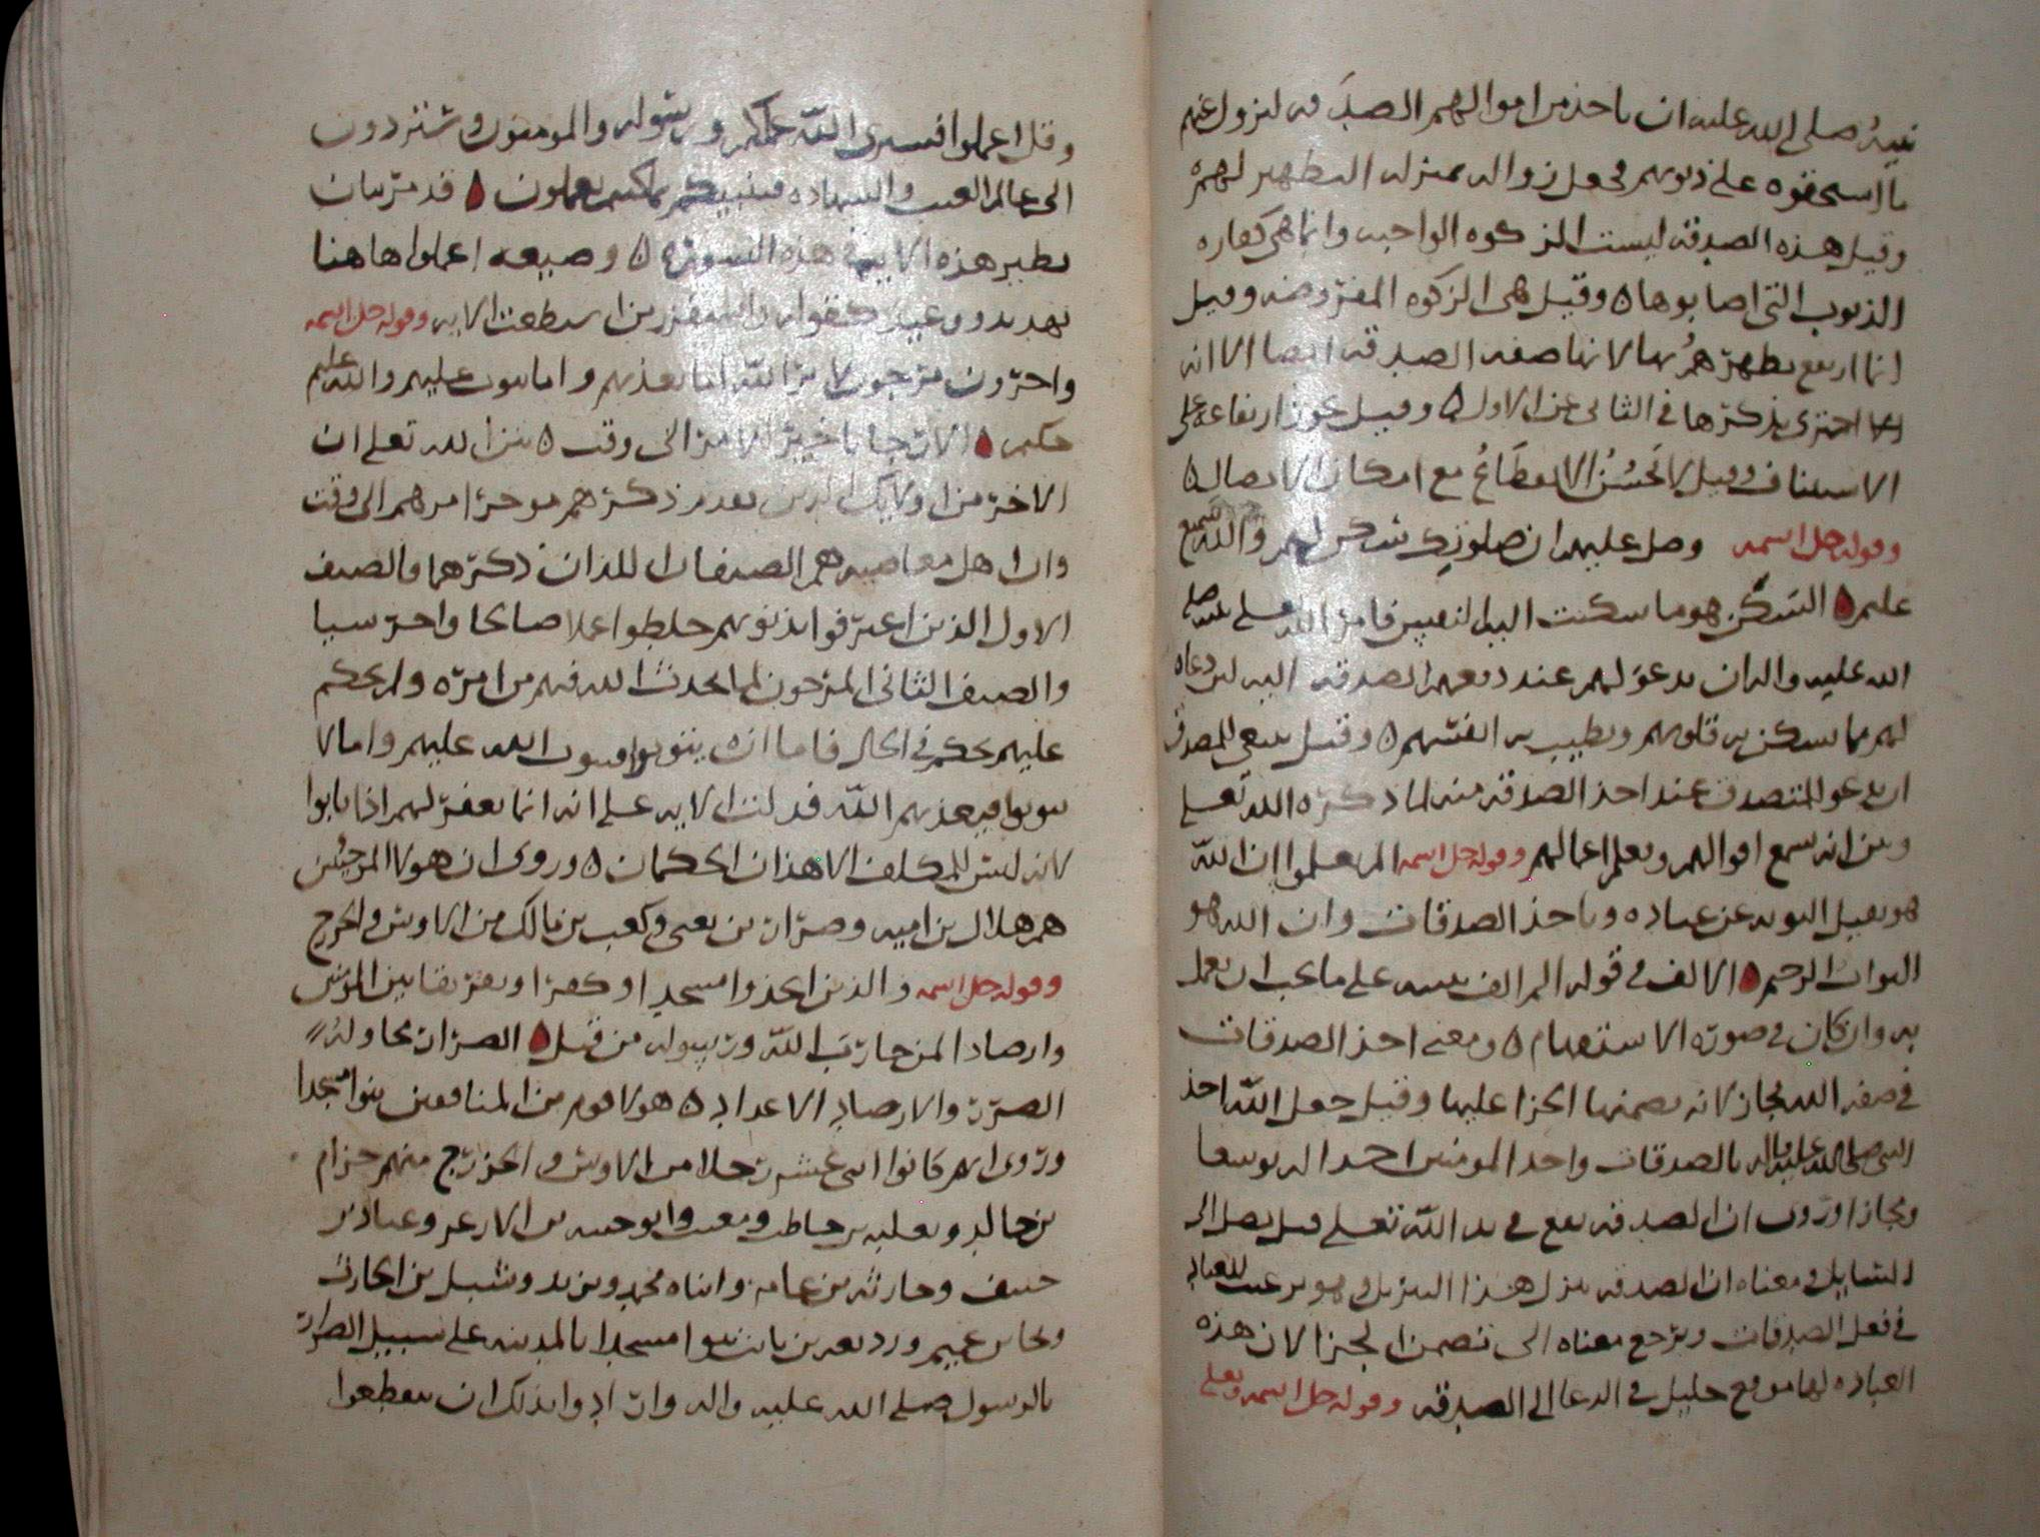 نبيه صلى الله عليه ان ياخذ من اموالهم الصدقه ليزول عنهم
ما استحقوه على ذنوبهم فجعل زواله بمنزله التطهير لهم ه
وقيل هذه الصدقه ليست الزكوه الواجبه وانما هي كفاره
الذنوب التي اصابوها ه وقيل هي الزكوه المفروضه وقيل
انما ارتفع تطهرهم بها لانها صفه الصدقه ايضا الا انه
اجتزى بذكرها في الثاني عن الاول ه وقيل يجوز ارتفاعه على
الاستيناف وقيل لا يحسن الانقطاع مع امكان الاتصال ه
وقوله جل اسمه وصل عليهم ان صلوتك سكن لهم والله سميع
عليم ه السكن هو ما سكنت اليه النفس فامر الله تعلى نبيه صلى
الله عليه واله ان يدعو لهم عند دفعهم الصدقه اليه لان دعاه
لهم مما يسكن به قلوبهم وتطيب به انفسهم ه وقيل ينبغي للمصدق
ان يدعو للمتصدق عند اخذ الصدقه منه لما ذكره الله تعلى
وبين انه سمع اقوالهم ويعلم اعمالهم وقوله جل اسمه الم يعلموا ان الله
هو يقبل التوبه عن عباده وياخذ الصدقات وان الله هو
التواب الرحيم ه الالف في قوله الم الف تنبيه على ما يجب ان يعمل
به وان كان في صوره الاستفهام ه ومعنى اخذ الصدقات
في صفه الله مجاز لانه يضمنها الجزا عليها وقيل جعل الله اخذ
النبي صلى الله عليه واله بالصدقات واخذ المومنين اخذا له توسعا
ومجازا وروى ان الصدقه تقع في يد الله تعلى قبل تصل الى
السايل ومعناه ان الصدقه تنزل هذا التنزيل وهو ترغيب للعباد
في فعل الصدقات ويرجع معناه الى تضمن الجزا لان هذه
العباده لها موقع جليل في الدعا الى الصدقه وقوله جل اسمه وتعلى
وقل اعملوا فسيرى الله عملكم ورسوله والمومنون وستردون
الى عالم الغيب والشهاده فينبيكم بما كنتم تعملون ه قد مر بيان
نظير هذه الايه في هذه السوره ه وصيغه اعملوا هاهنا
تهديد ووعيد كقوله واستفزز من استطعت الايه وقوله جل اسمه
واخرون مرجون لامر الله اما يعذبهم واما يتوب عليهم والله عليم
حكيم ه الارجا تاخير الامر الى وقت ه بين الله تعلى ان
الاخر من اوليك الذين تقدم ذكرهم موخر امرهم الى وقت
وان اهل معاصيه هم الصنفان اللذان ذكرهما فالصنف
الاول الذين اعترفوا بذنوبهم خلطوا عملا صالحا واخر سيا
والصنف الثاني المرجون لما يحدث الله فيهم من امره ولم يحكم
عليهم بحكم في الحال فاما ان يتوبوا فيتوب الله عليهم واما لا
يتوبوا فيعذبهم الله فدلت الايه على انه انما يغفر لهم اذا تابوا
لانه ليس للمكلف الا هذان الحكمان ه وروى ان هولا المرجين
هم هلال بن اميه وضرار بن يعنى وكعب بن مالك من الاوس والخزرج
وقوله جل اسمه والذين اتخذوا مسجدا وكفرا وتفريقا بين المومنين
وارصادا لمن حارب الله ورسوله من قبل ه الضرار محاوله
الضرر والارصاد الاعداد ه هولا قوم من المنافقين بنوا مسجدا
وروى انهم كانوا اثنى عشر رجلا من الاوس والخزرج منهم حزام
بن خالد وثعلبه بن حاطب ومعتب وابو حبيبه بن الازعر وعباد بن
حنيف وحارثه بن عامر وابناه مجمع وزيد ونبيل بن الحارث
وبجاد بن عمير ووديعه بن ثابت بنوا مسجدا بالمدينه على سبيل الضرار
بالرسول صلى الله عليه واله وارادوا بذلك ان يقطعوا